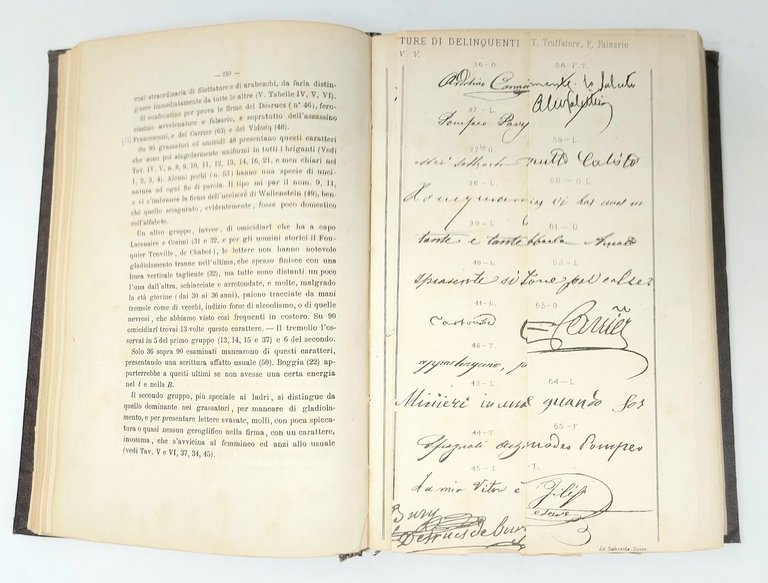 — 220 —
così straordinaria di filettature e di arabeschi, da farla distin-
guere immediatamente da tutte le altre (V. Tabelle IV, V, VI).
Si confrontino per prova le firme dei Desrues (n° 46), fero-
cissimo avvelenatore e falsario, e sopratutto dell'assassino
Francesconi, e del Carrier (63) e del Vidocq (48).
Su 90 grassatori ed omicidi 48 presentano questi caratteri
che sono poi singolarmente uniformi in tutti i briganti (Vedi
Tav. IV, V, n. 8, 9, 10, 11, 12, 13, 14, 16, 21, e men chiari nei
1, 2, 3, 4). Alcuni pochi (n. 53) hanno una specie di unci-
natura ad ogni fin di parola. Il tipo mi par il num. 9, 11,
e vi s'imbranca la firma dell'uccisore di Wallenstein (49), ben-
chè quello sciagurato, evidentemente, fosse poco domestico
coll'alfabeto.
Un altro gruppo, invece, di omicidiari che ha a capo
Lacenaire e Cosimi (31 e 32, e per gli uomini storici il Fou-
quier Teaville, de Chabot), le lettere non hanno notevole
gladiolamento tranne nell'ultima, che spesso finisce con una
linea verticale tagliente (32), ma tutte sono distanti un poco
l'una dall'altra, schiacciate e arrotondate, e molte, malgrado
la età giovine (dai 30 ai 36 anni), paiono tracciate da mani
tremole come di vecchi, indizio forse di alcoolismo, o di quelle
nevrosi, che abbiamo visto così frequenti in costoro. Su 90
omicidiari trovai 13 volte questo carattere. — Il tremolio l'os-
servai in 5 del primo gruppo (13, 14, 15 e 37) e 6 del secondo.
Solo 36 sopra 90 esaminati mancarono di questi caratteri,
presentando una scrittura affatto usuale (50). Boggia (22) ap-
parterrebbe a questi ultimi se non avesse una certa energia
nel t e nella B.
Il secondo gruppo, più speciale ai ladri, si distingue da
quello dominante nei grassatori, per mancare di gladiola-
mento, e per presentare lettere svasate, molli, con poca spicca-
tura o quasi nessun geroglifico nella firma, con un carattere,
insomma, che s'avvicina al femmineo ed anzi allo usuale
(vedi Tav. V e VI, 37, 34, 45).
TURE DI DELINQUENTI T, Truffatore, F, Falsario
V. V.
36-O. 56-F-T
mente lo saluto
37-L.
Pompeo
37bis O. 59-L.
Calisto
38-L. 60-O.L
39-L. 61-O
tante e tante
40-L. 62-L.
41-L. 63-O.
Carrier
42-T.
43-L. 64-L.
Minieri in quando
44-T. 65-F
Pompeo
45-L. -T.
La mio Vitor e
Bury
Desrues de Bury
Lit Salussolia, Torino